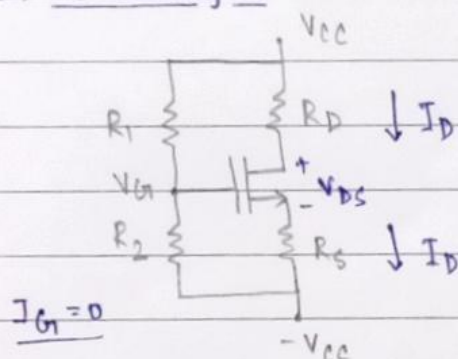 VCC
R1 RD ↓ ID
VG + VDS -
R2 RS ↓ ID
IG = 0
-VCC